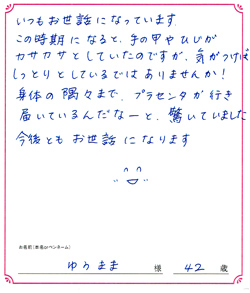 いつもお世話になっています
この時期になると、手の甲やひじが
カサカサとしていたのですが、気がつけば
しっとりとしているではありませんか!
身体の隅々まで、プラセンタが行き
届いているんだなーと、驚いていました
今後ともお世話になります
お名前(本名orペンネーム)
ゆうまま 様 42 歳